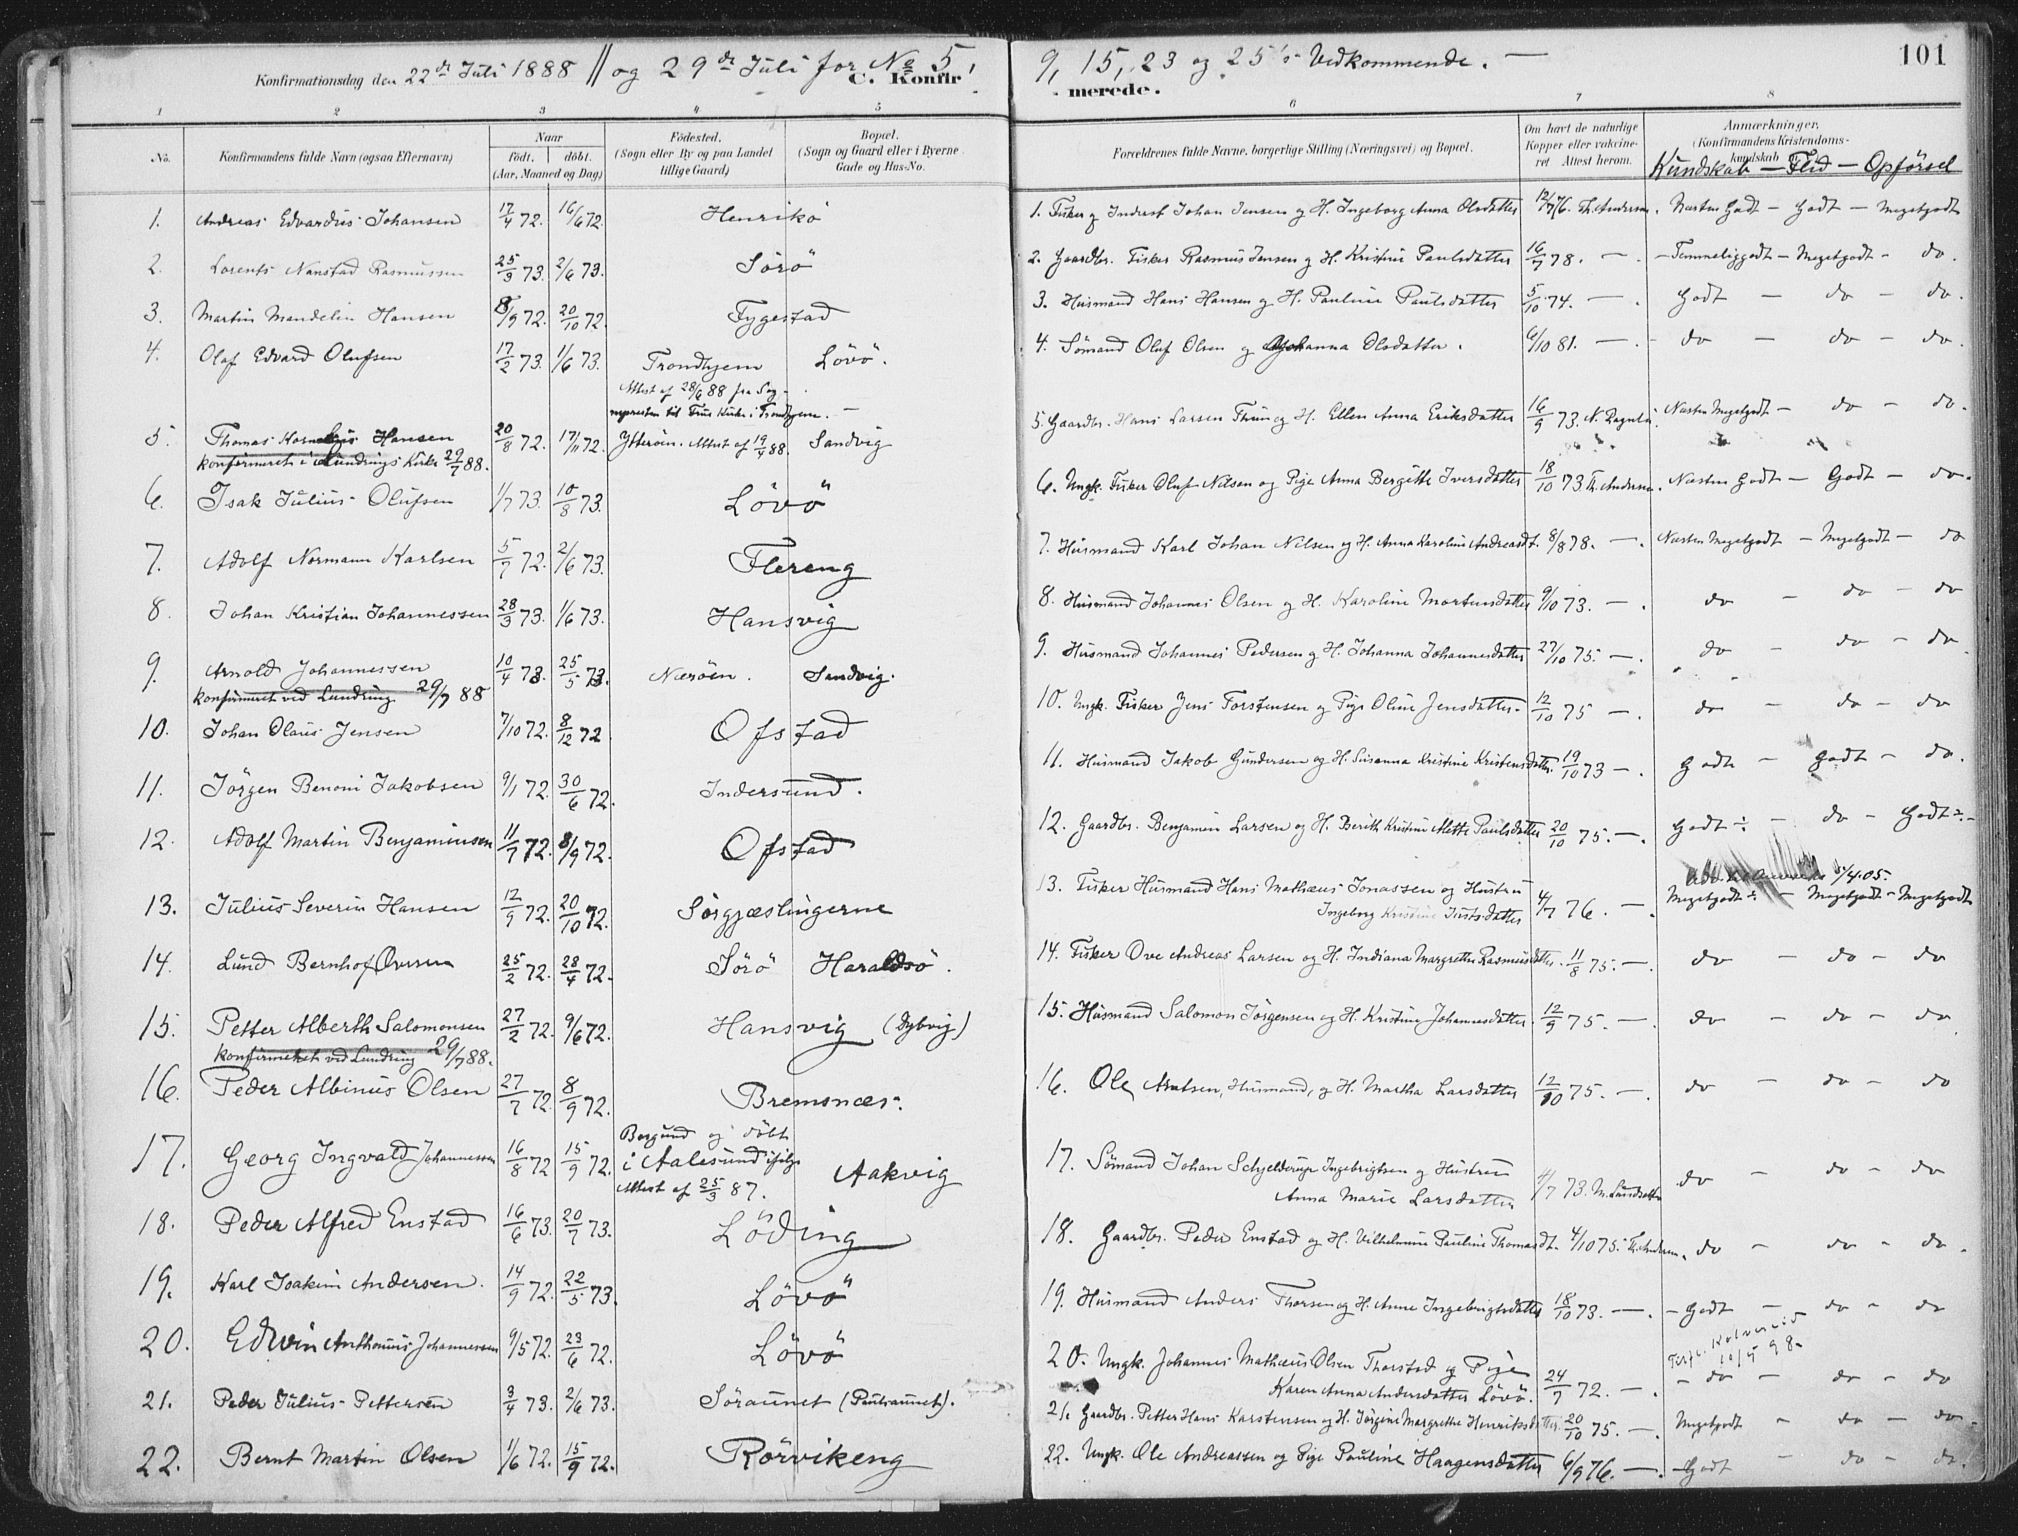 Konfirmationsdag den 22de Juli 1888 // og 29de Juli for No 5, 9, 15, 23 og 25's Vedkommende. —
C. Konfirmerede.
101
1 2 3 4 5 6 7 8
No.
Konfirmandens fulde Navn (ogsaa Efternavn)
Naar
født. døbt.
(Aar, Maaned og Dag)
Fødested.
(Sogn eller By og paa Landet
tillige Gaard)
Bopæl.
(Sogn og Gaard eller i Byerne
Gade og Hus-No.
Forældrenes fulde Navne, borgerlige Stilling (Næringsvei) og Bopæl.
Om havt de naturlige
Kopper eller vakcine-
ret Attest herom.
Anmærkninger.
(Konfirmandens Kristendoms-
kundskab
Kundskab — Flid — Opførsel
1. Andreas Edvardius Johansen 17/4 72. 16/6 72. Henrikö 1. Fisker og Inderst Johan Jensen og H. Ingeborg Anna Olsdatter 12/7 76. Th. Andersen. Næsten Godt — Godt — Megetgodt
2. Lorents Nanstad Rasmussen 25/3 73. 2/6 73. Sörö 2. Gaardbr. Fisker Rasmus Jensen og H. Kristine Paulsdatter 16/7 78. — Temmeliggodt — Megetgodt — do.
3. Martin Mandelin Hansen 8/9 72. 20/10 72. Tygestad 3. Husmand Hans Hansen og H. Pauline Paulsdatter 5/10 74. — Godt — do — do.
4. Olaf Edvard Olufsen 17/2 73. 1/6 73. Trondhjem Lövö. 4. Sömand Oluf Olsen og Johanna Olsdatter. 6/10 81. — do — do — do.
Attest af 28/6 88 fra Sog-
nepresten til Frue Kirke i Trondhjem. —
5. Thomas Kornelius Hansen 20/8 72. 17/11 72. Ytterøen. Attest af 19/4 88. Sandvig 5. Gaardbr. Hans Larsen Thun og H. Ellen Anna Eriksdatter 16/9 73. Næsten Megetgodt — do — do.
konfirmeret i Lundrings Kirke 29/7 88.
6. Isak Julius Olufsen 1/7 73. 10/8 73. Lövö 6. Ungk. Fisker Oluf Nilsen og Pige Anna Bergitte Iversdatter 18/10 73 Th. Andersen. Næsten Godt — Godt — do.
7. Adolf Normann Karlsen 5/7 72. 2/6 73. Flereng 7. Husmand Karl Johan Nilsen og H. Anna Karoline Andreasdt. 8/8 78. — Næsten Megetgodt — Megetgodt — do
8. Johan Kristian Johannessen 28/3 73. 1/6 73. Hansvig 8. Husmand Johannes Olsen og H. Karoline Mortensdatter 9/10 73. — do — do — do
9. Arnold Johannessen 10/4 73. 25/5 73. Nærøen. Sandvig. 9. Husmand Johannes Pedersen og H. Johanna Johannesdatter 27/10 75. — do — do — do
konfirmeret ved Lundring 29/7 88
10. Johan Olaus Jensen 7/10 72. 8/12 72 Ofstad 10. Ungk. Fisker Jens Torstensen og Pige Oline Jensdatter. 12/10 75 — do — do — do
11. Jörgen Benoni Jakobsen 9/1 72. 30/6 72. Indersund. 11. Husmand Jakob Gundersen og H. Susanna Kristine Kristensdatter. 19/10 73 — Godt — Godt — do.
12. Adolf Martin Benjaminsen 11/7 72. 8/9 72. Ofstad 12. Gaardbr. Benjamin Larsen og H. Berith Kristine Mette Paulsdatter 20/10 75. — Godt ÷ — do — Godt ÷
13. Julius Severin Hansen 12/9 72. 20/10 72. Sörgjæslingerne 13. Fisker Husmand Hans Mathæus Jonassen og Hustru
Ingeborg Kristine Justsdatter 4/7 76. — Megetgodt ÷ — Megetgodt — Megetgodt
14. Lund Bernhof Ovesen 25/2 72. 28/4 72. Sörö Haraldsö. 14. Fisker Ove Andreas Larsen og H. Indiana Margrethe Rasmusdatter. 11/8 75. — do — do — do
15. Petter Alberth Salomonsen 27/2 72. 9/6 72. Hansvig (Dybvig) 15. Husmand Salomon Jörgensen og H. Kristine Johannesdatter. 12/9 75. — do — do — do
konfirmeret ved Lundring 29/7 88.
16. Peder Albinus Olsen 27/7 72. 8/9 72. Bremsnæs. 16. Ole Arntsen, Husmand, og H. Martha Larsdatter 12/10 75. — do — do — do
17. Georg Ingvald Johannessen 16/8 72 15/9 72. Borgund og döbt
i Aalesund ifölge
Attest af 25/3 87. Aakvig 17. Sömand Johan Schjelderup Ingebrigtsen og Hustru
Anna Marie Larsdatter 4/7 73. M. Lundsetter do — do — do
18. Peder Alfred Enstad 16/6 73. 20/7 73. Löding 18. Gaardbr. Peder Enstad og H. Vilhelmine Pauline Thomasdt. 4/10 75. Th. Andersen. do — do — do.
19. Karl Joakim Andersen. 14/9 72. 22/5 73. Lövö 19. Husmand Anders Thorsen og H. Anne Ingebrigtsdatter 18/10 73. — Godt — do — do
20. Edvin Anthonius Johannessen 9/5 72. 23/6 72. Lövö 20. Ungk. Johannes Mathæus Olsen Thorstad og Pige
Karen Anna Andersdatter Lövö. 24/7 72. — do — do — do
10/5 98.
21. Peder Julius Pettersen 3/4 73. 2/6 73. Söraunet (Paulsaunet). 21. Gaardbr. Petter Hans Karstensen og H. Jörgine Margrethe Henriksdatter. 20/10 75. — Megetgodt — do — do
22. Bernt Martin Olsen 1/6 72. 15/9 72. Rörvikeng 22. Ungk. Ole Andreassen og Pige Pauline Haagensdatter 6/9 76. — Godt — do — do.